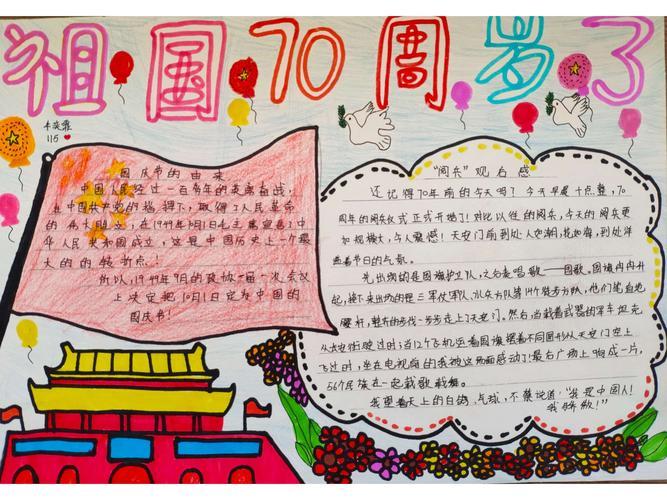 祖国70周岁了
115
国庆节的由来
中国人民经过一百多年的英勇奋战,
在中国共产党的指挥下,取得了人民革命
的伟大胜利,在1949年10月1日毛主席宣告了中
华人民共和国成立,这是中国历史上一个最
大的的转折点!
所以,1949年9月的政协一届一次会议
上决定把10月1日定为中国的
国庆节!
“阅兵”观后感
还记得70年前的今天吗?今天早晨十点整,70
周年的阅兵仪式正式开始了!对比以往的阅兵,今天的阅兵更
加规模大,令人震憾!天安门前到处人山人海,花如海,到处洋
溢着节日的气氛。
先出场的是国旗护卫队,之后是唱歌——国歌。国旗冉冉升
起,接下来出场的是三军仪军队,
腰杆,整齐的步伐一步步走上了天安门,然后当载着武器的军车坦克
从长安街驶过时;当12个飞机运着国旗摆着不同图形从天安门空上
飞过时,坐在电视前的我被这场面感动了!最后广场上响成一片,
56个民族在一起载歌载舞。
我望着天上的白鸽、气球,不禁说道:“我是中国人!
我骄傲!”